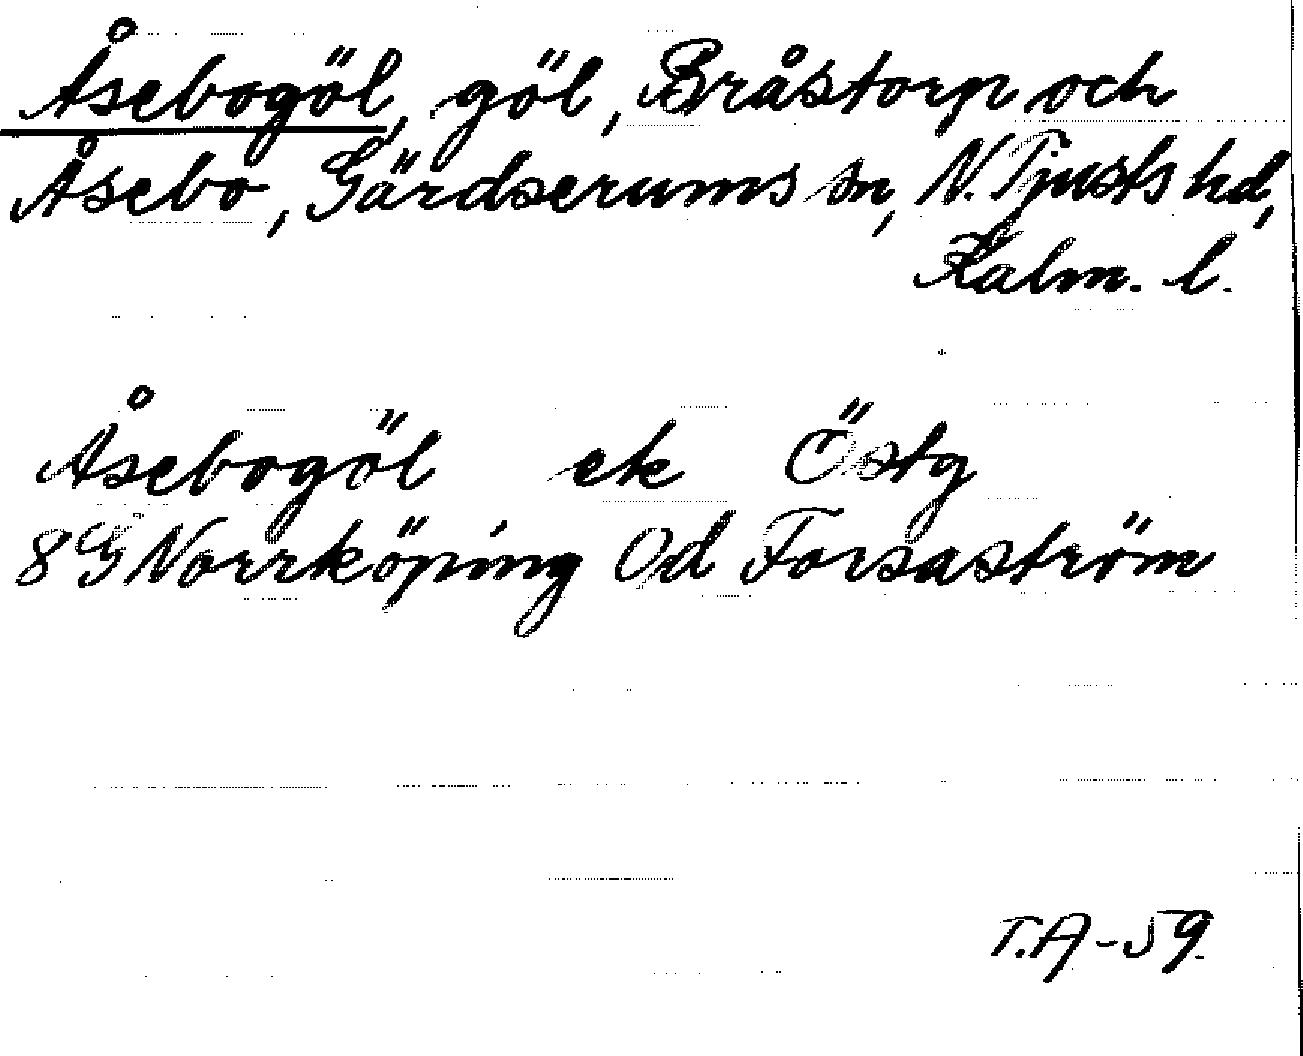 Åsebogöl, göl, Bråstorp och
Åsebo, Gärdserums sn, N. Tjusts hd,
Kalm. l.
Åsebogöl ek Östg
8G Norrköping 0d Forsaström
T.A-59